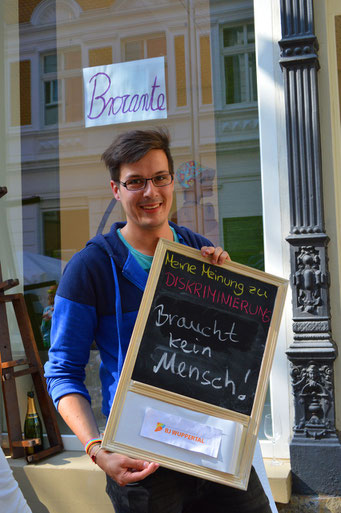 Brocante
Meine Meinung zu
DISKRIMINIERUNG
Braucht
kein
Mensch!
WUPPERTAL